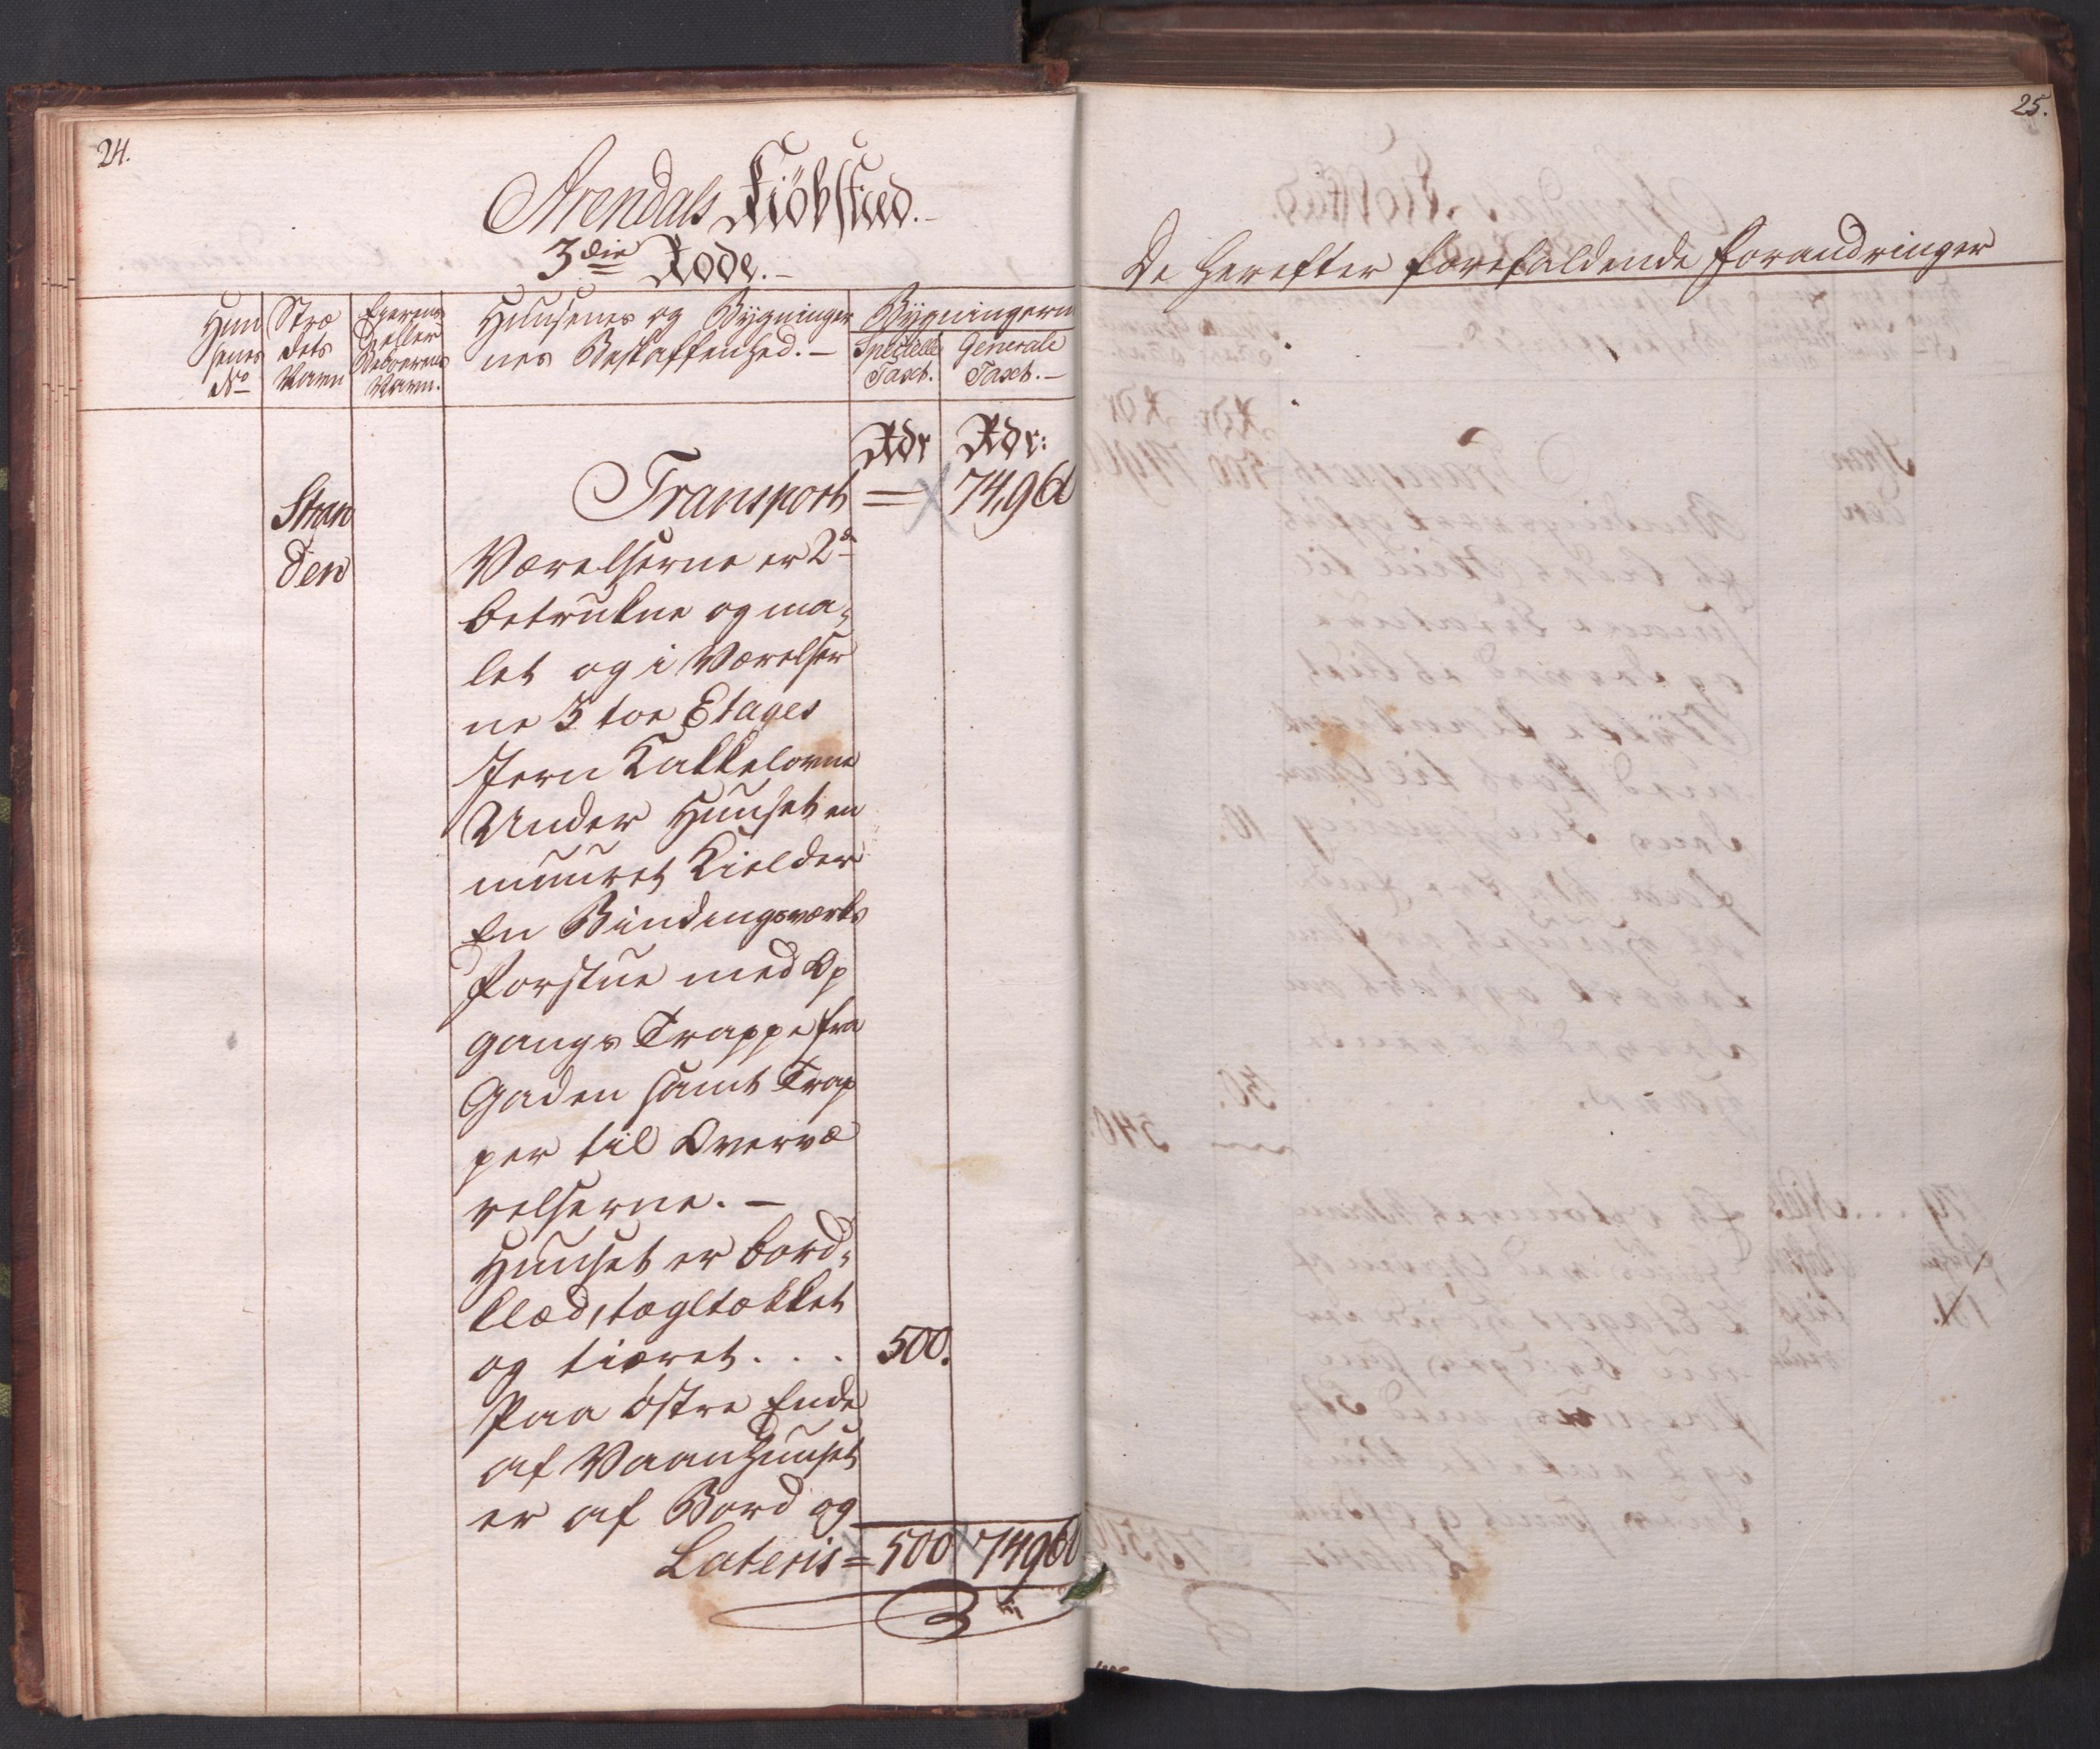 24.
Arendals Kiöbstæd.-
3die Rode.-
Huu
senes
No
Stræ
dets
Navn
Eyernes
eller
Beboernes
Navn.
Huusenes og Bygninger
nes Beskaffenhed.-
Bygningern
Specielle
Taxt.
Generale
Taxt.-
Rdr Rdr:
Transport = 74,960
Stran
den
Værelserne er 2de
betrukne og ma-
let og i Værelser
ne 3 toe Etages
Jern Kakkelovne
Under Huuset en
muuret Kielder
En Bindingsværks
Forstue med Op
gangs Trappe fra
Gaden samt Trap
per til Overvæ
relserne.-
Huuset er bord-
klæd, tægltækket
og tiæret. . . 500.
Paa östre Ende
af Vaanhuuset
er af Bord og
Lateris = 500 74960
25.
De herefter forefaldende Forandringer